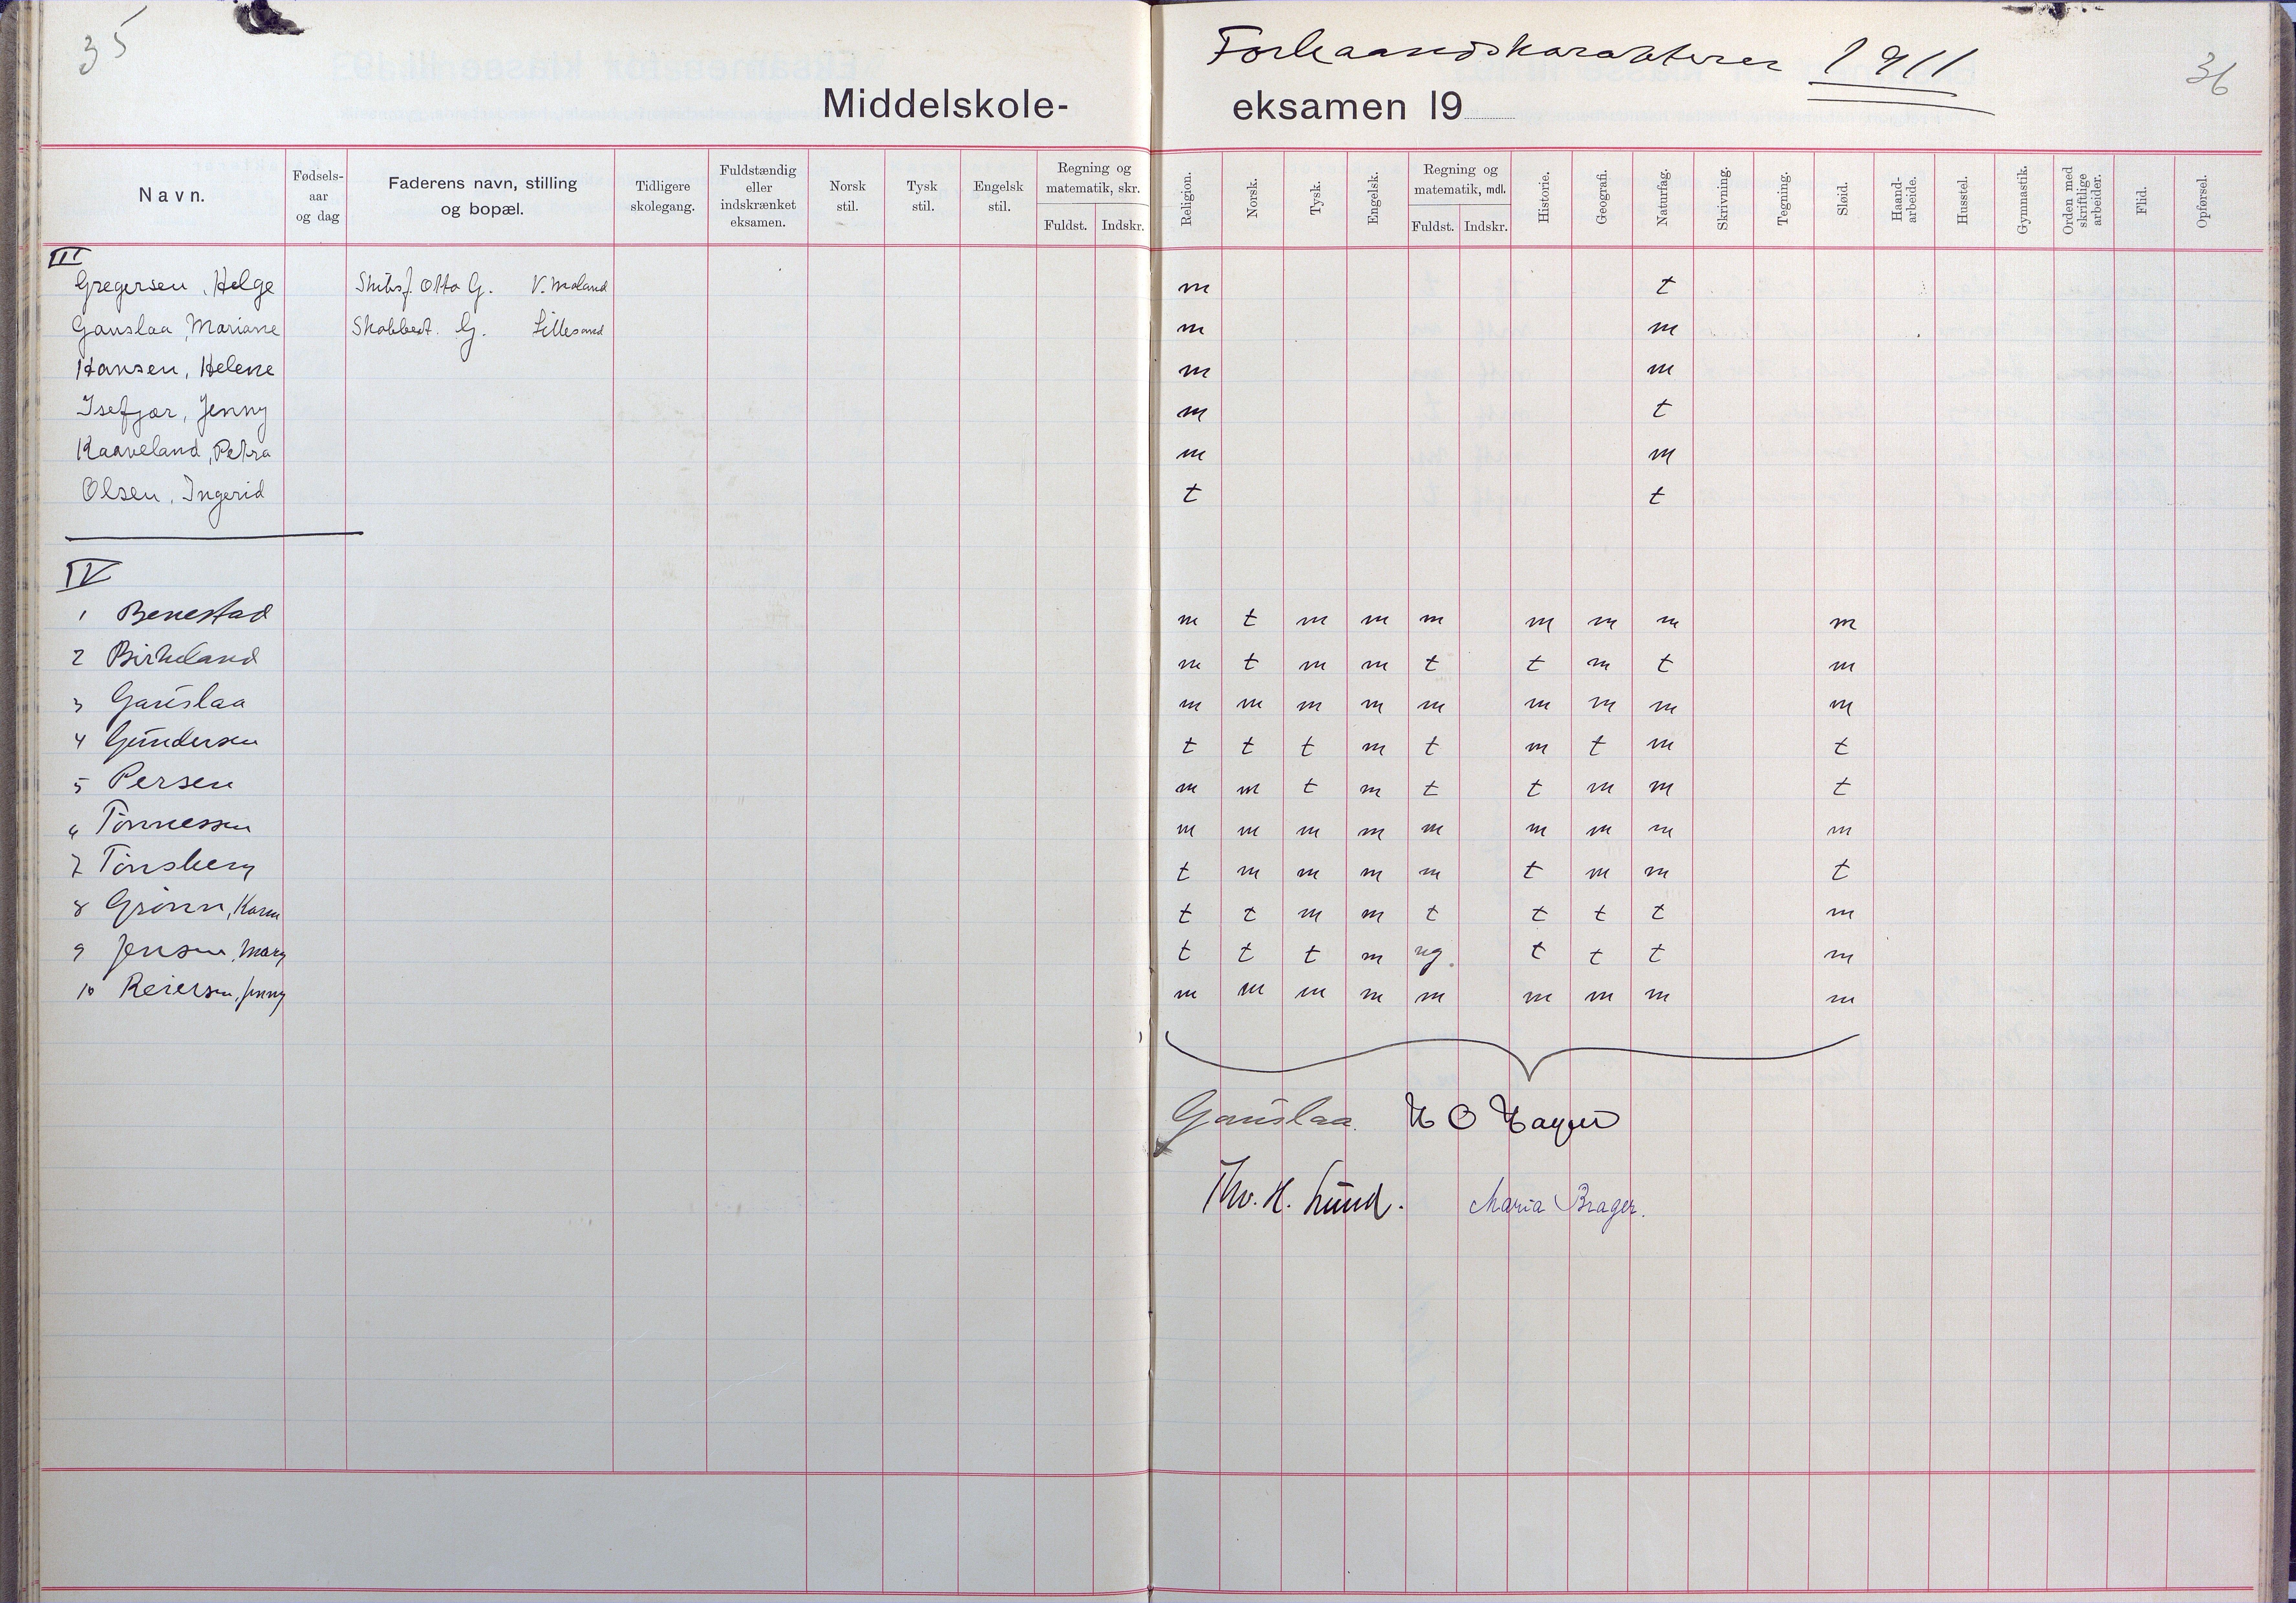 35
Forhaandskarakterer 1911
36
Middelskole-eksamen 19
Navn. Fødsels-aar og dag Faderens navn, stilling og bopæl. Tidligere skolegang. Fuldstændig eller indskrænket eksamen. Norsk stil. Tysk stil. Engelsk stil. Regning og matematik, skr. Fuldst. Indskr. Religion. Norsk. Tysk. Engelsk. Regning og matematik, mdl. Fuldst. Indskr. Historie. Geografi. Naturfag. Skrivning. Tegning. Sløid. Haand-arbeide. Husstel. Gymnastik. Orden med skriftlige arbeider. Flid. Opførsel.
III
Gregersen, Helge Skibsf. Otto G. V. Moland m t
Gauslaa, Mariane G. Lillesand m m
Hansen, Helene m m
Isefjær, Jenny m t
Kaaveland, Petra m m
Olsen, Ingerid t t
IV
1 Benestad m t m m m m m m m
2 Birkeland m t m m t t m t m
3 Gauslaa m m m m m m m m m
4 Gundersen t t t m t m t m t
5 Persen m m t m t t m m t
6 Tønnessen m m m m m m m m m
7 Tønsberg t m m m m t m m t
8 Grønn, Karen t t m m t t t t m
9 Jensen, Mary t t t m ng. t t t m
10 Reiersen, Jenny m m m m m m m m m
Gauslaa. H O Hagen
Thv. H. Lund. Maria Brager.